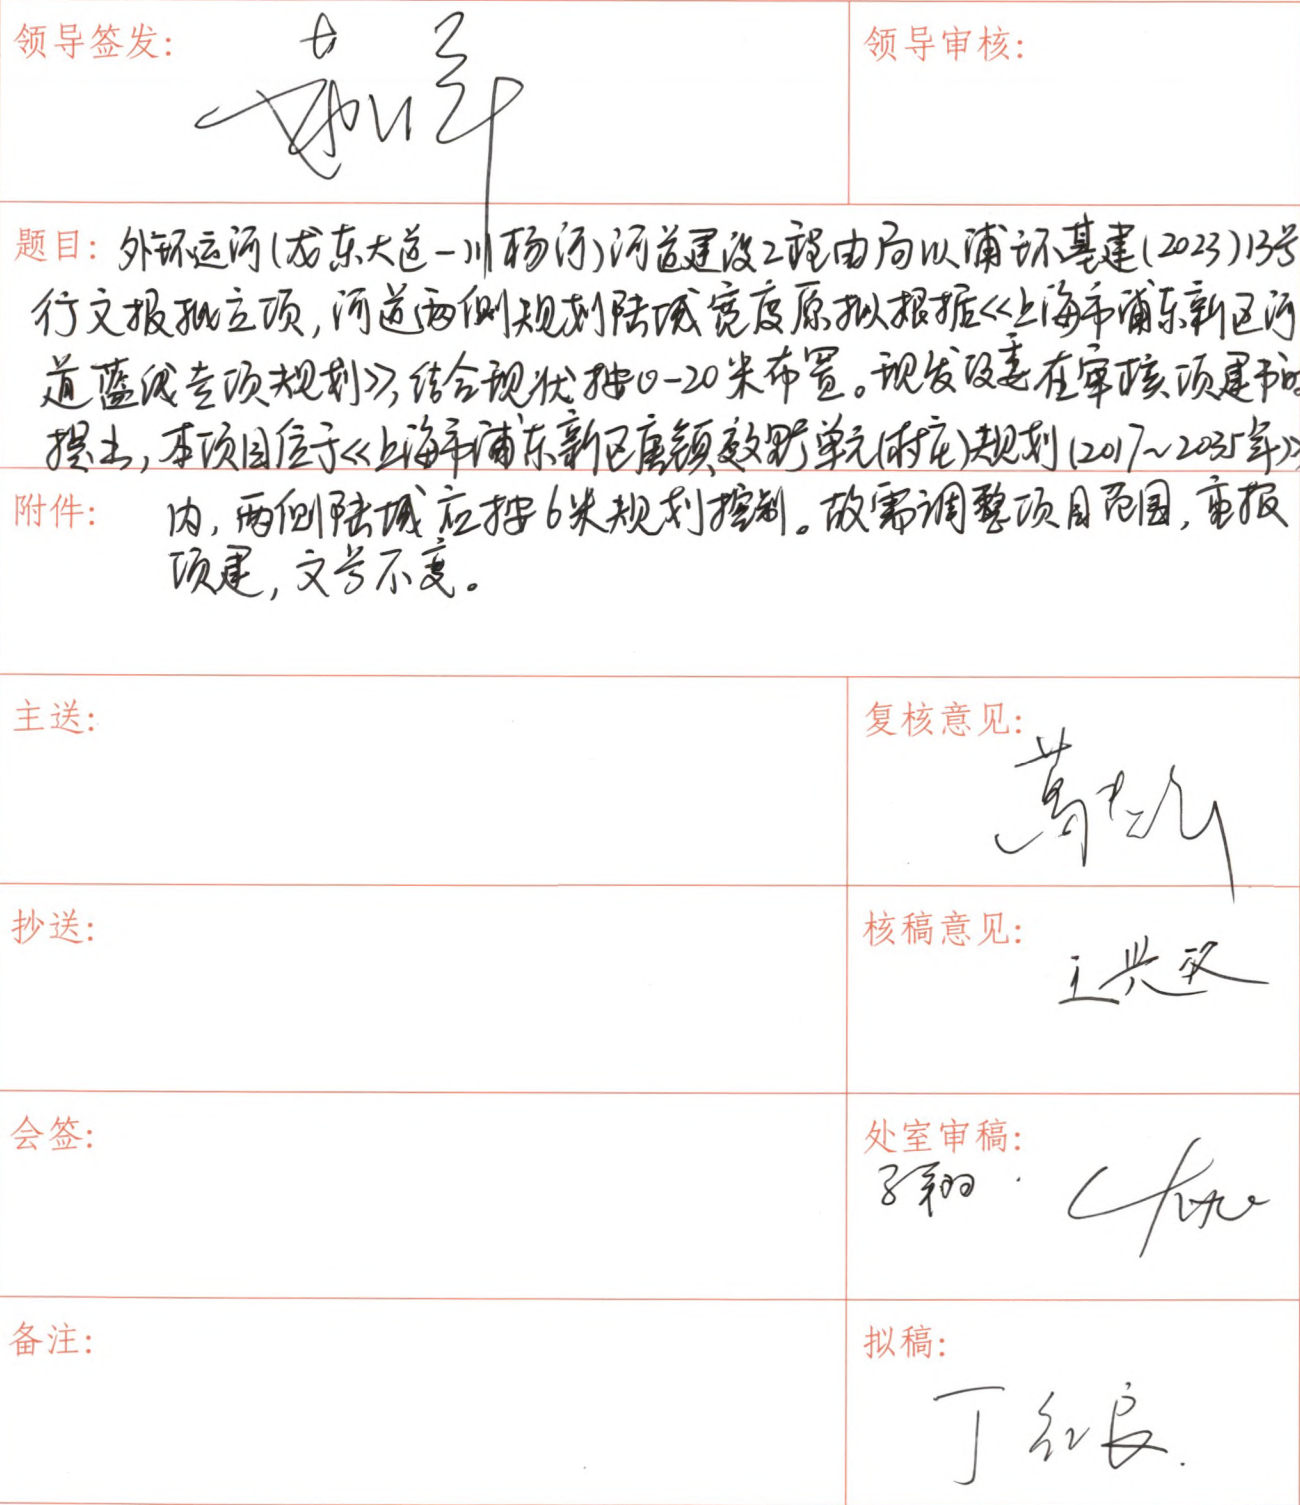 领导签发:
领导审核:
题目: 外环运河(龙东大道—川杨河)河道建设工程由局以浦环基建(2023)13号
行文报批立项,河道两侧规划陆域宽度原拟根据《上海市浦东新区河
道蓝线专项规划》,结合现状按0-20米布置。现发改委在审核项建书时
提出,本项目位于《上海市浦东新区唐镇郊野单元(村庄)规划(2017~2035年)》
附件: 内,两侧陆域应按6米规划控制。故需调整项目范围,重报
项建,文号不变。
主送:
复核意见:
抄送:
核稿意见:
会签:
处室审稿:
备注:
拟稿:
丁红良.